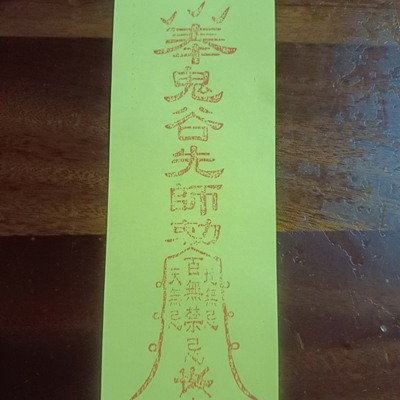 奉鬼谷先師勅
地無忌
百無禁忌
天無忌